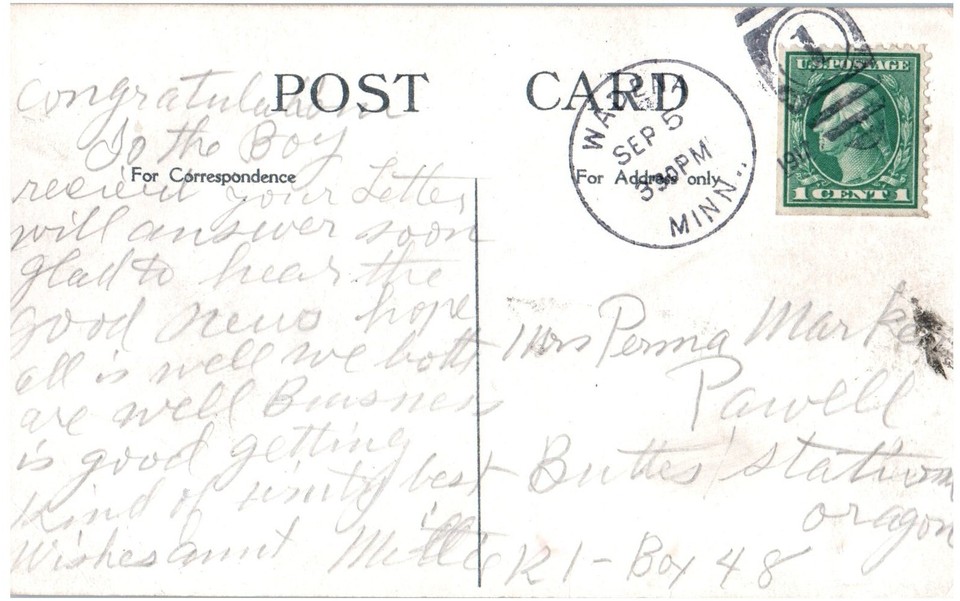 POST CARD
For Correspondence
For Address only
WA
SEP 5
PM
MINN.
1
191
U.S. POSTAGE
1 CENT 1
Congratulations
to the Boy
recieved your Letter
will answer soon
glad to hear the
good news hope
all is well we both
are well Buisness
is good getting
kind of
best
Wishes aunt Millie
Mrs Perma Marke
Pawell
Buttes Station
oragon
R 1 - Box 48